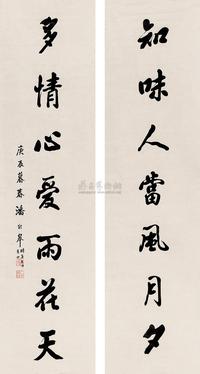 知味人當風月夕
多情心愛雨花天
庚辰暮春潘齡皋